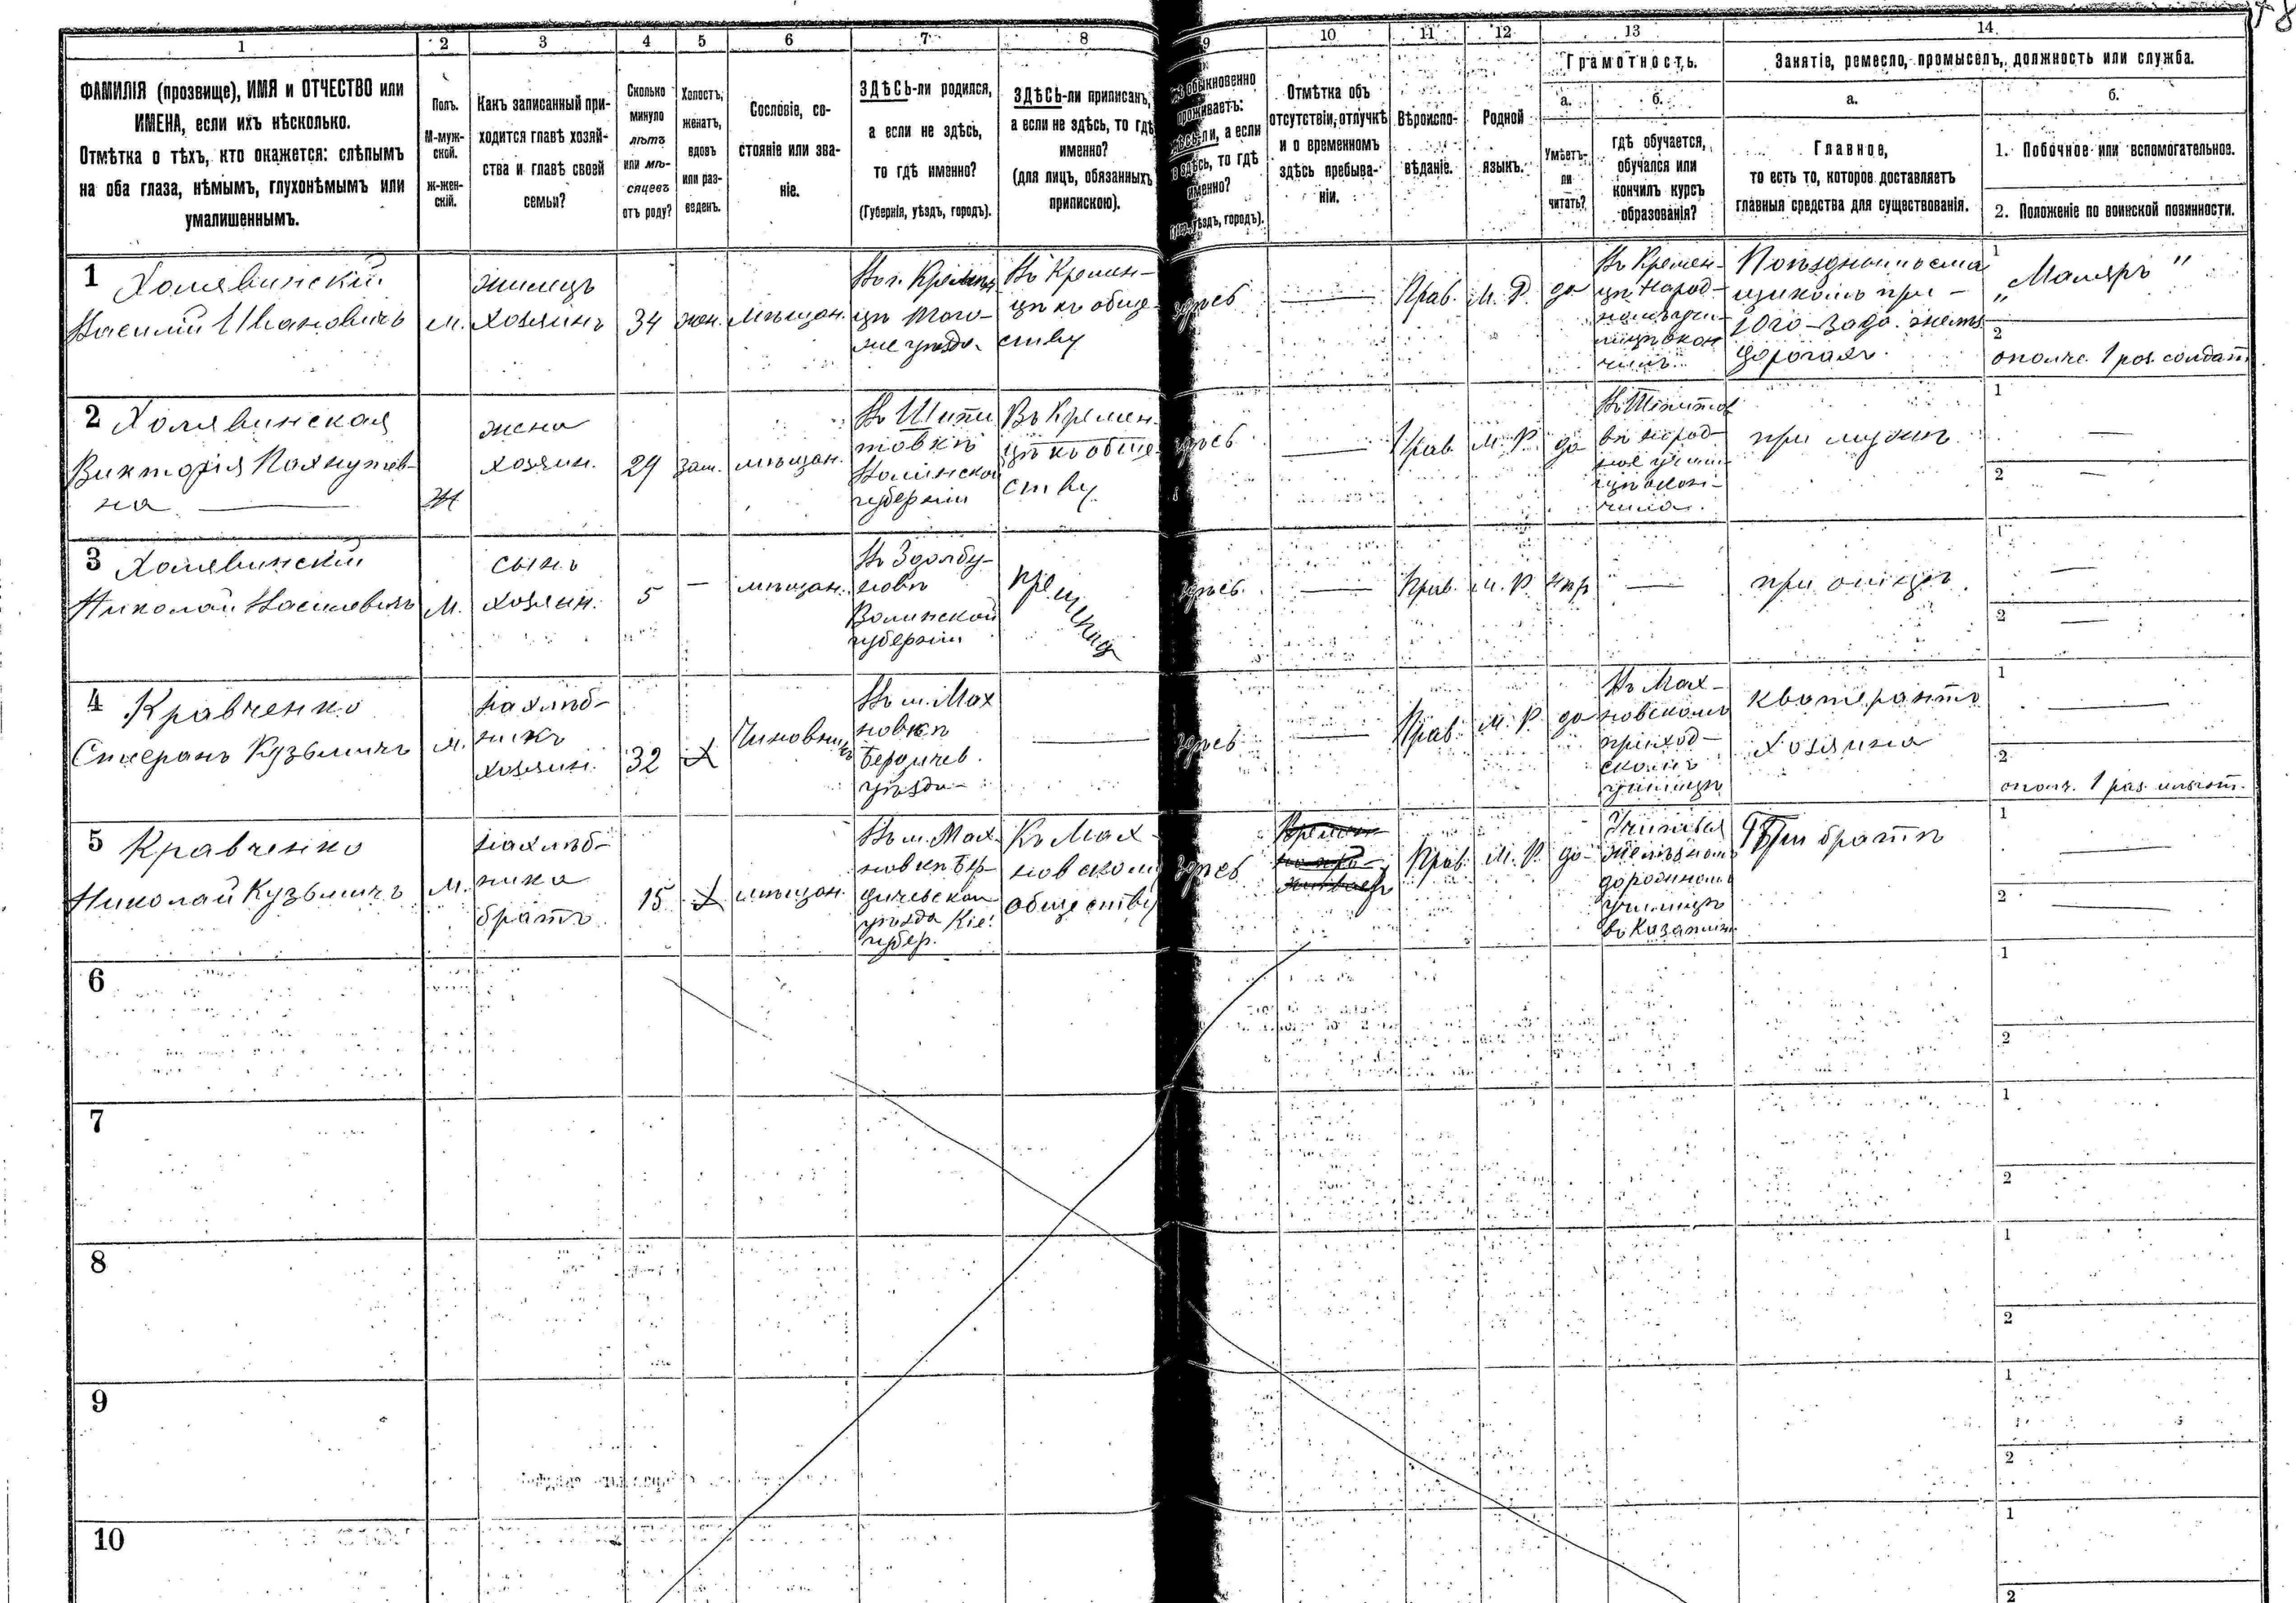 1 2 3 4 5 6 7 8 9 10 11 12 13 14
ФАМИЛІЯ (прозвище), ИМЯ и ОТЧЕСТВО или
ИМЕНА, если ихъ нѣсколько.
Отмѣтка о тѣхъ, кто окажется: слѣпымъ
на оба глаза, нѣмымъ, глухонѣмымъ или
умалишеннымъ.
Полъ.
М-муж-
ской.
ж-жен-
скій.
Какъ записанный при-
ходится главѣ хозяй-
ства и главѣ своей
семьи?
Сколько
минуло
лѣтъ
или мѣ-
сяцевъ
отъ роду?
Холостъ,
женатъ,
вдовъ
или раз-
веденъ.
Сословіе, со-
стояніе или зва-
ніе.
ЗДѢСЬ-ли родился,
а если не здѣсь,
то гдѣ именно?
(Губернія, уѣздъ, городъ).
ЗДѢСЬ-ли приписанъ,
а если не здѣсь, то гдѣ
именно?
(для лицъ, обязанныхъ
припискою).
обыкновенно
проживаетъ:
а если
здѣсь, то гдѣ
именно?
уѣздъ, городъ).
Отмѣтка объ
отсутствіи, отлучкѣ
и о временномъ
здѣсь пребыва-
ніи.
Вѣроиспо-
вѣданіе.
Родной
языкъ.
Грамотность.
а.
Умѣетъ-
ли
читать?
б.
гдѣ обучается,
обучался или
кончилъ курсъ
образованія?
Занятіе, ремесло, промыселъ, должность или служба.
а.
Главное,
то есть то, которое доставляетъ
главныя средства для существованія.
б.
1. Побочное или вспомогательное.
2. Положеніе по воинской повинности.
1 Холявинскій
Василій Ивановичъ
м.
жилецъ
хозяинъ
34
жен.
мѣщан.
Въ г. Кременъ
цѣ того-
же уѣзда
Въ Кремен-
цѣ къ обще-
ству
здѣсь
Прав.
М. Р.
да
Въ Кремен-
цѣ народ-
окон
чилъ
при
Юго-Запа. желѣз
дорогахъ
1
„Маляръ"
2
ополч. 1 раз. солдат
2 Холявинская
Викторія Пахнутев-
на
Ж
жена
хозяин.
29
зам.
мѣщан.
Въ Шепе
товкѣ
Волинской
губерніи
Въ Кремен.
цѣ къ обще-
ству
здѣсь
Прав.
М. Р.
да
при мужѣ
1
2
3 Холявинскій
Николай Васильевичъ
М.
сынъ
хозяин.
5
мѣщан.
Въ Здолбу-
новѣ
Волинской
губерніи
здѣсь
Прав.
М. Р.
при отцѣ
1
2
4 Кравченко
Кузьмичъ
м.
нахлѣб-
никъ
хозяин.
32
Х
Чиновникъ
Въ м. Мах
новкѣ
Бердичев.
уѣзда
здѣсь
Прав.
М. Р.
да
Въ Мах-
новскомъ
приход-
скомъ
училищѣ
квотерантъ
хозяина
1
2
ополч. 1 раз.
5 Кравченко
Николай Кузьмичъ
М.
нахлѣб-
ника
братъ
15
Х
мѣщан.
Въ м. Мах
новкѣ Бер
дичевскаго
уѣзда Кіе.
губер.
Къ Мах
новскому
обществу
здѣсь
Прав.
М. Р.
да
дорожномъ
училищѣ
въ Казатинѣ
При братѣ
1
2
6
1
2
7
1
2
8
1
2
9
1
2
10
1
2